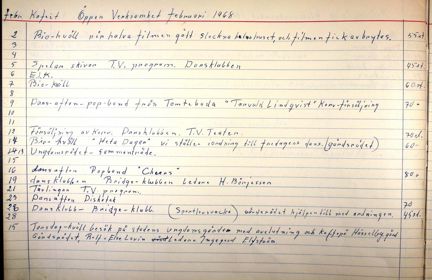 febr. Kafeit Öppen Verksamhet februari 1968
2 Bio-kväll när halva filmen gått slocknade huset, och filmen fick avbrytas. 55 st
3
4
5 Spelan skivor T.V. program. Dansklubben 45 st.
6 E.I.K.
7 Bio-kväll 60 st.
8
9 Dans-afton-pop-band från Tomteboda "Tanvulk Lindqvist" Korv-försäljning 70 -
10
13 Försäljning av Korv. Dansklubben. T.V. Teatern. 70 st.
14 Bio-kväll "Heta Dagen" vi ställer i ordning till fredagens dans (gårdsrådet) 60 -
Ungdomsrådet - sammanträde.
16 dansafton Popband "Cheers" 80 st
19 dansklubben Bridge-klubben Ledare H. Börjesson
21 Tävlingen T.V. program.
23 Dansafton Diskotek 70
26 Dansklubb - Bridge-klubb. (Sportlovsvecka) gårdsrådet hjälper till med ordningen. 45 st.
28
15 Torsdag-kväll besök på stadens ungdomsgårdar med avslutning och kaffe på Hässelbygård
Gårdsrådet, Rolf-Else Lovin Ledare Ingegerd Elfström